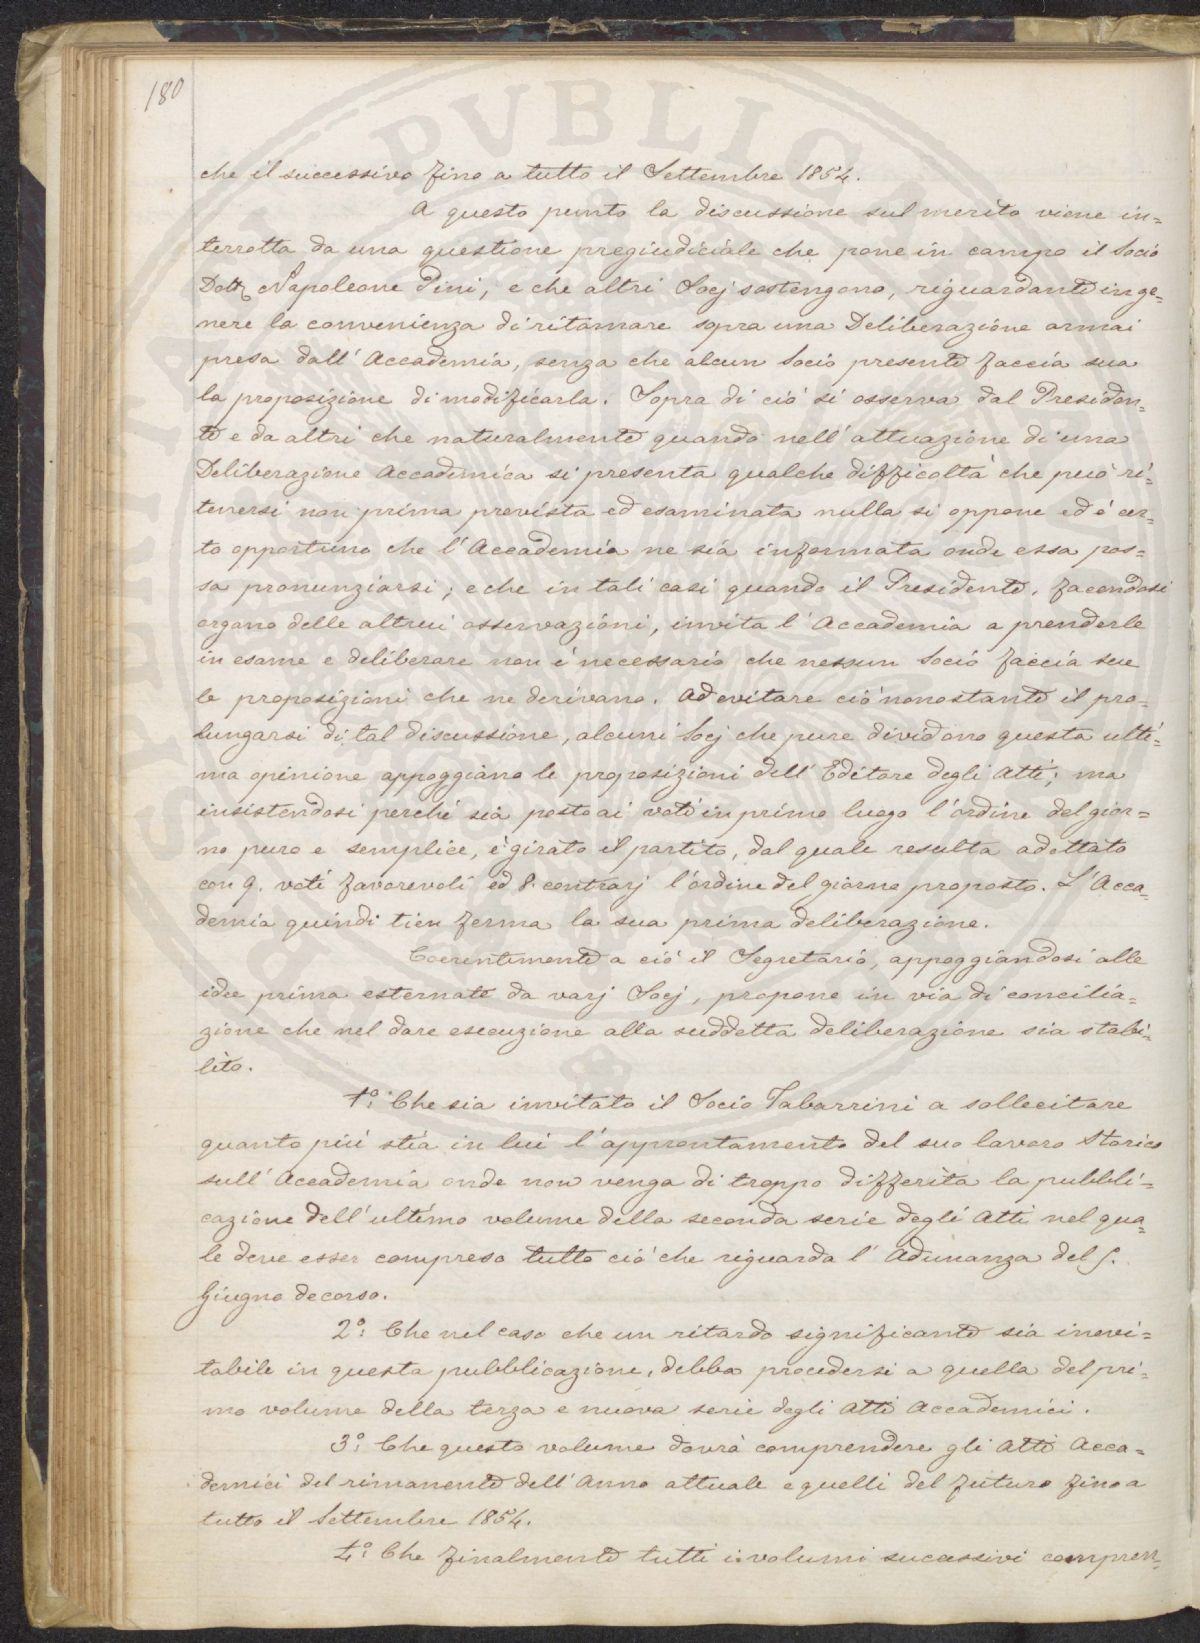 180
che il successivo fino a tutto il Settembre 1854.
A questo punto la discussione sul merito viene in=
terrotta da una questione pregiudiciale che pone in campo il Socio
Dott. Napoleone Pini, e che altri Socj sostengono, riguardante in ge=
nere la convenienza di ritornare sopra una Deliberazione ormai
presa dall' Accademia, senza che alcun Socio presente faccia sua
la proposizione di modificarla. Sopra di ciò si osserva dal Presiden=
te e da altri che naturalmente quando nell' attuazione di una
Deliberazione Accademica si presenta qualche difficoltà che può ri=
tenersi non prima prevista ed esaminata nulla si oppone ed è cer=
to opportuno che l' Accademia ne sia informata onde essa pos=
sa pronunziarsi; e che in tali casi quando il Presidente, facendosi
organo delle altrui osservazioni, invita l' Accademia a prenderle
in esame e deliberare non è necessario che nessun Socio faccia sue
le proposizioni che ne derivano. Ad evitare ciò nonostante il pro=
lungarsi di tal discussione, alcuni Socj che pure dividono questa ulti=
ma opinione appoggiano le proposizioni dell' Editore degli Atti; ma
insistendosi perché sia posto ai voti in primo luogo l' ordine del gior=
no puro e semplice, è girato il partito, dal quale resulta adottato
con 9. voti favorevoli ed 8. contrarj l' ordine del giorno proposto. L' Acca=
demia quindi tien ferma la sua prima deliberazione.
Coerentemente a ciò il Segretario, appoggiandosi alle
idee prima esternate da varj Socj, propone in via di concilia=
zione che nel dare esecuzione alla suddetta deliberazione sia stabi=
lito.
1°: Che sia invitato il Socio Tabarrini a sollecitare
quanto più stia in lui l' approntamento del suo lavoro Storico
sull' Accademia onde non venga di troppo differita la pubbli=
cazione dell' ultimo volume della seconda serie degli Atti nel qua=
le deve esser compreso tutto ciò che riguarda l' Adunanza del 5.
Giugno decorso.
2°: Che nel caso che un ritardo significante sia inevi=
tabile in questa pubblicazione, debba procedersi a quella del pri=
mo volume della terza e nuova serie degli Atti Accademici.
3°: Che questo volume dovrà comprendere gli Atti Acca=
demici del rimanente dell' Anno attuale e quelli del futuro fino a
tutto il Settembre 1854.
4°: Che finalmente tutti i volumi successivi compren=